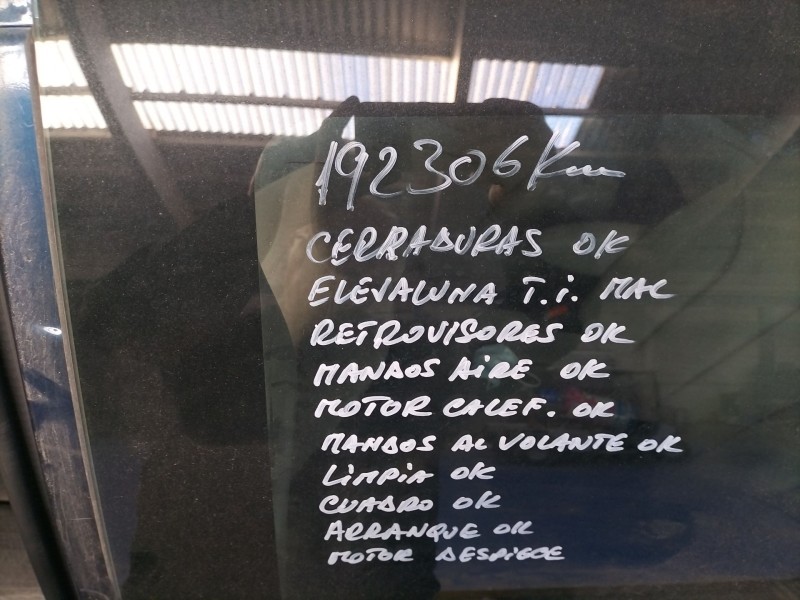 192306 Km
CERRADURAS OK
ELEVALUNA T.i. MAL
RETROVISORES OK
MANDOS AiRE OK
MOTOR CALEF. OK
MANDOS AL VOLANTE OK
LiMPiA OK
CUADRO OK
ARRANQUE OK
MOTOR DESPIECE